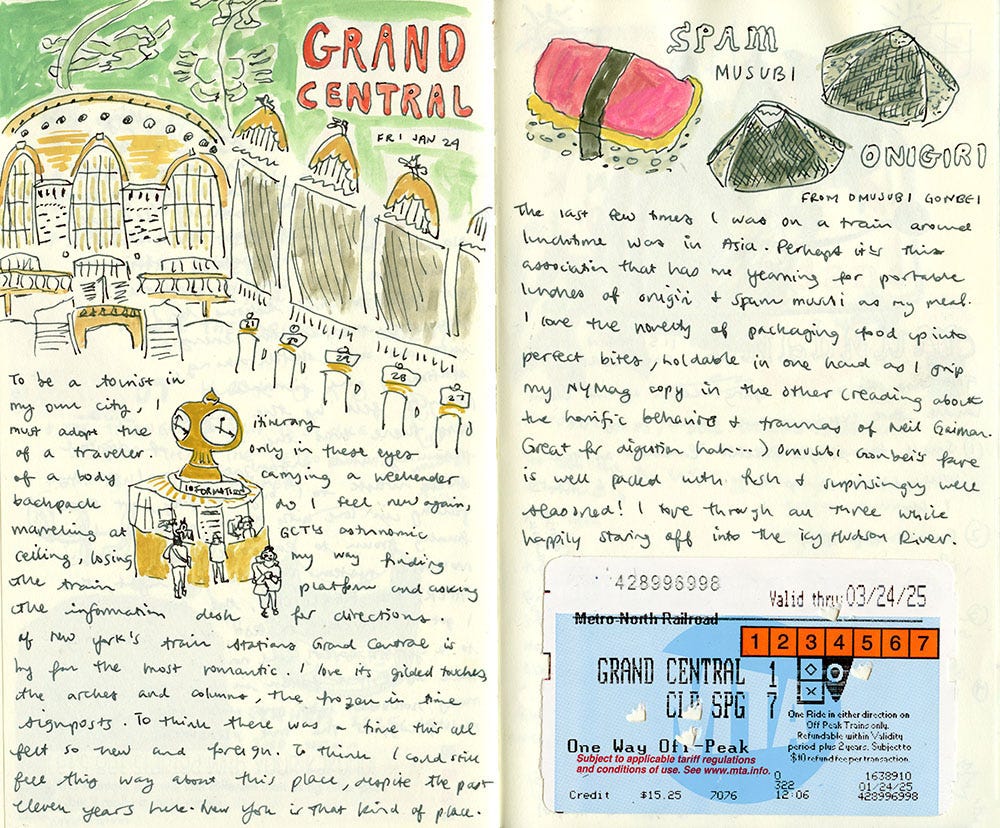 GRAND
CENTRAL
FRI JAN 24
30
29
28
27
To be a tourist in
my own city, I
must adopt the itinerary
of a traveler. only in these eyes
of a body carrying a weekender
backpack do I feel new again,
marveling at GCT's astronomic
ceiling, losing my way finding
the train platform and asking
the information desk for directions.
Of New York's train stations Grand Central is
by far the most romantic. I love its gilded touches,
the arches and columns, the frozen in time
signposts. To think there was a time this all
felt so new and foreign. To think I could still
feel this way about this place, despite the past
eleven years here. New York is that kind of place.
INFORMATION
SPAM
MUSUBI
ONIGIRI
FROM OMUSUBI GONBEI
The last few times I was on a train around
lunchtime was in Asia. Perhaps it's this
association that has me yearning for portable
lunches of onigiri & spam musubi as my meal.
I love the novelty of packaging food up into
perfect bites, holdable in one hand as I grip
my NYMag copy in the other (reading about
the horrific behaviors & traumas of Neil Gaiman.
Great for digestion hah...) Omusubi Gonbei's fare
is well packed with fish & surprisingly well
seasoned! I tore through all three while
happily staring off into the icy Hudson River.
428996998
Valid thru 03/24/25
Metro-North Railroad
1 2 3 4 5 6 7
GRAND CENTRAL 1
SPG 7
One Ride in either direction on
Off Peak Trains only.
Refundable within Validity
period plus 2 years. Subject to
$10 refund fee per transaction.
MTA
One Way Off-Peak
Subject to applicable tariff regulations
and conditions of use. See www.mta.info.
0 1638910
322 01/24/25
Credit $15.25 7076 12:06 428996998